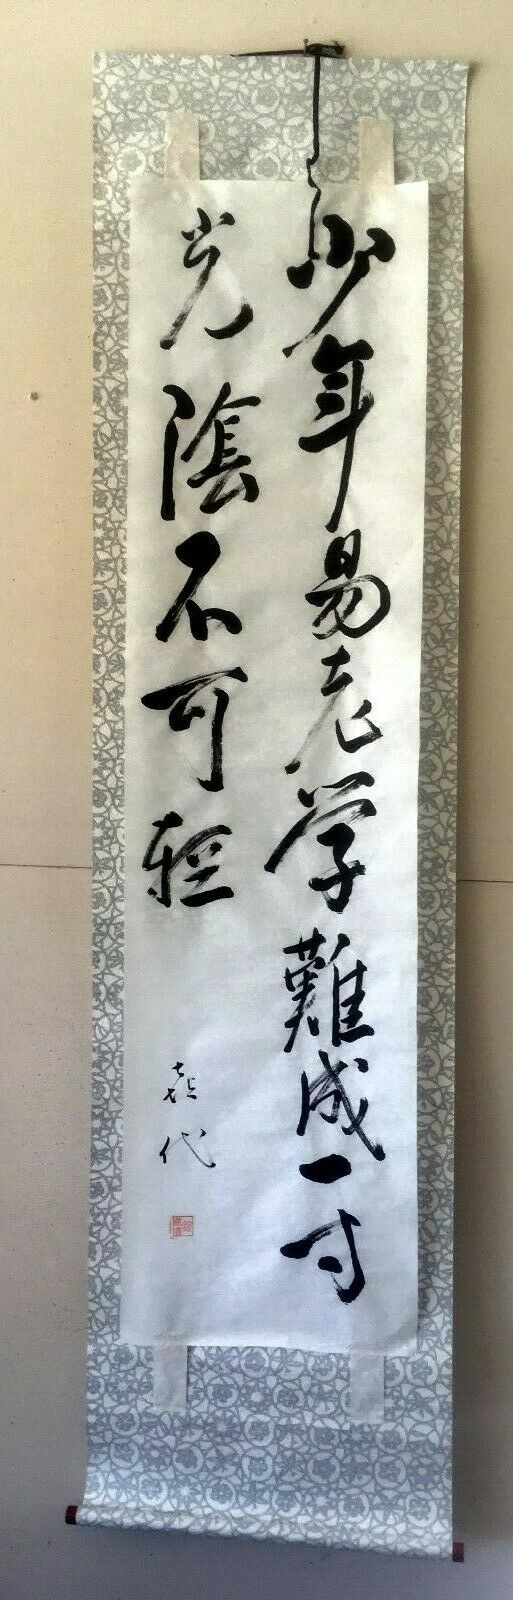 少年易老学難成一寸
光陰不可軽
喜代